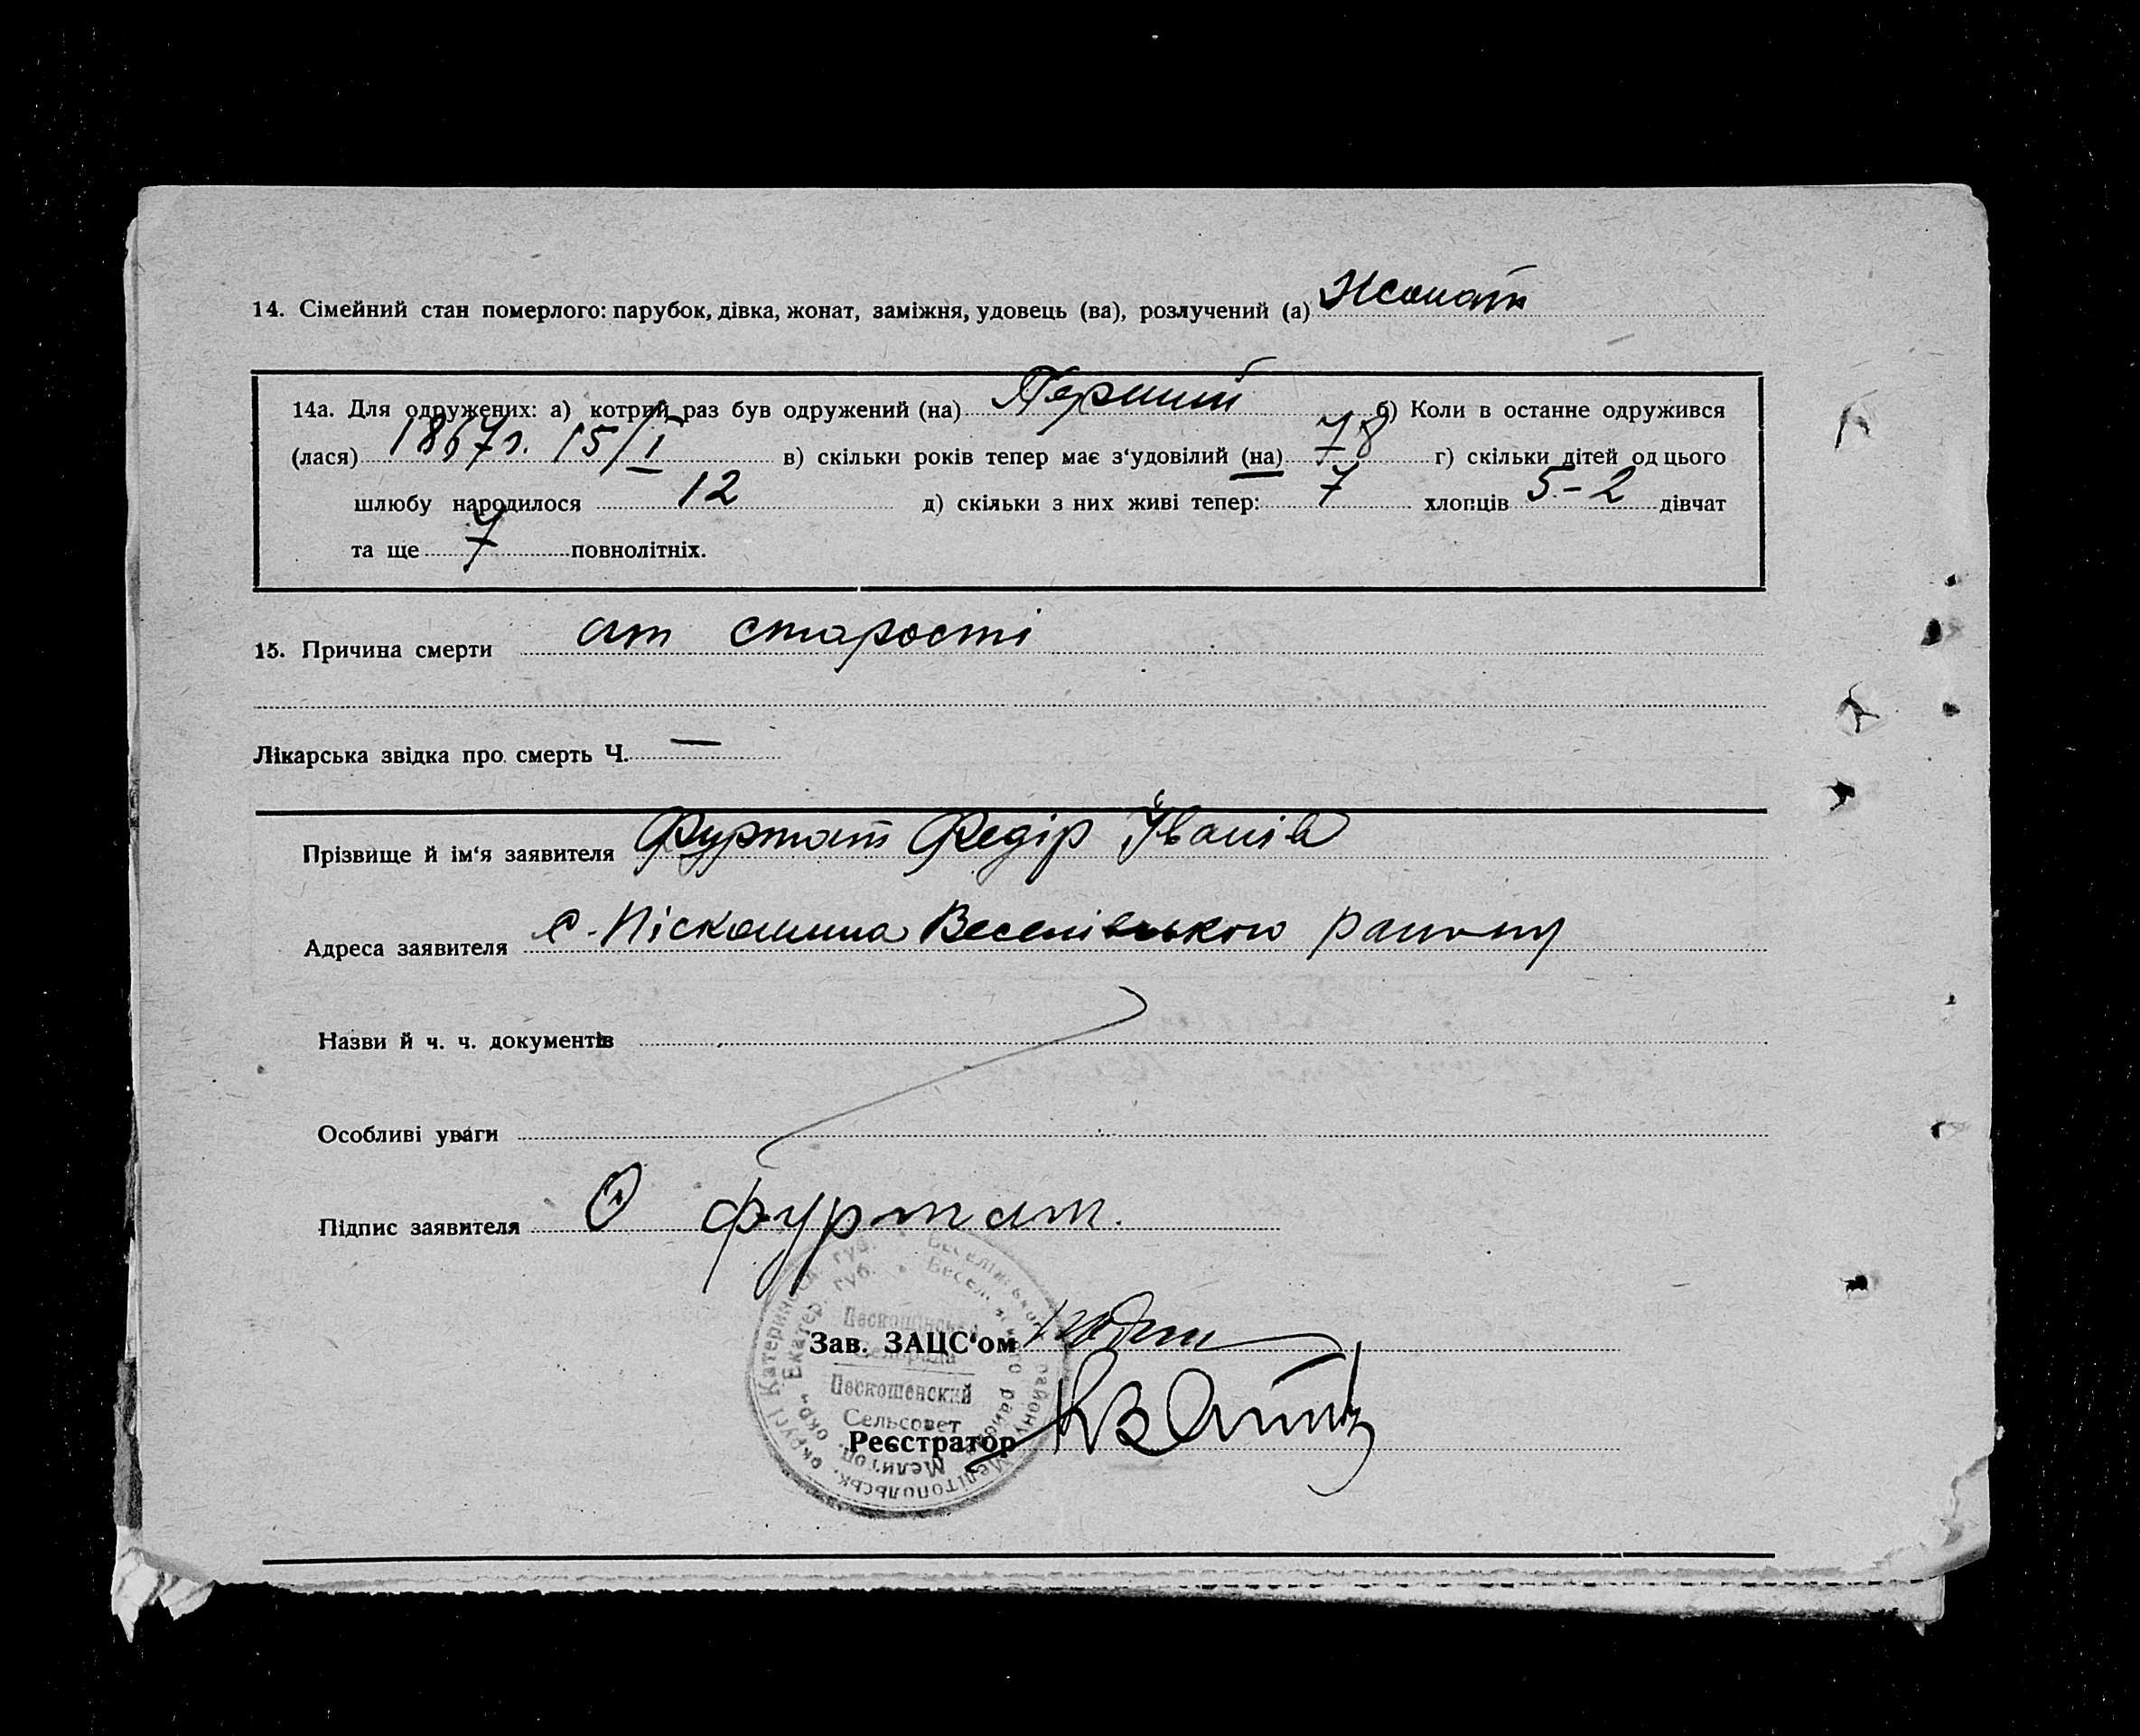 14. Сімейний стан померлого: парубок, дівка, жонат, заміжня, удовець (ва), розлучений (а) Жонат
14а. Для одружених: а) котрий раз був одружений (на) Перший б) Коли в останне одружився
(лася) 1867г. 15/I в) скільки років тепер має з‘удовілий (на) 78 г) скільки дітей од цього
шлюбу народилося 12 д) скільки з них живі тепер: 7 хлопців 5-2 дівчат
та ще 7 повнолітніх.
15. Причина смерти от старості
Лікарська звідка про смерть Ч. —
Прізвище й ім‘я заявителя Фуртат Федір Іванів
Адреса заявителя с. Піскошина Веселівського району
Назви й ч. ч. документів
Особливі уваги
Підпис заявителя Ф фуртат.
Зав. ЗАЦС‘ом
Реєстратор
Пескошинська
Сельрада
Пескошенский
Сельсовет